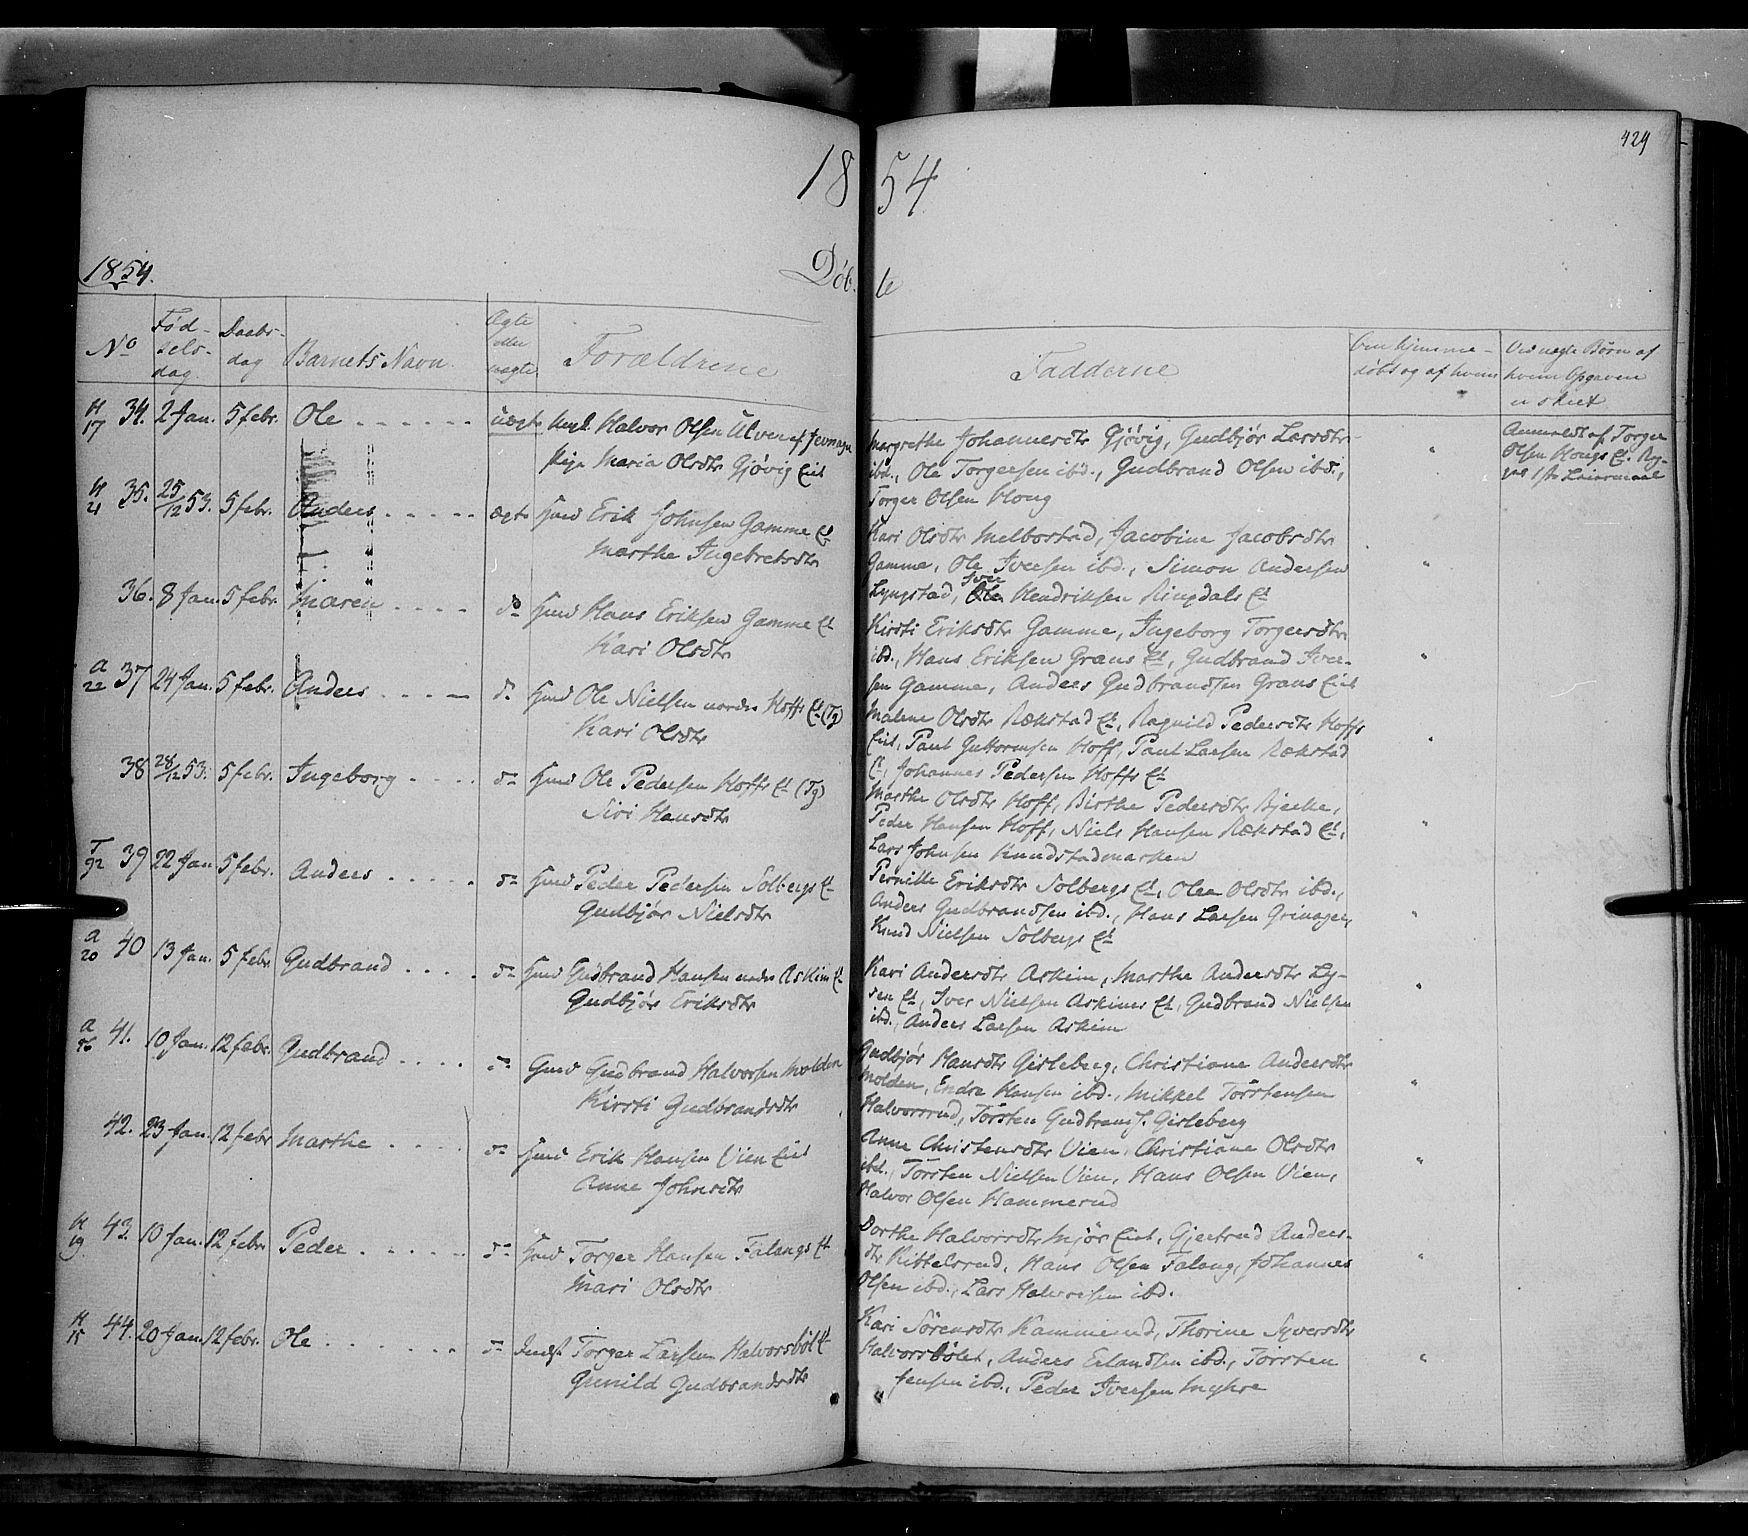 424
18 54
1854.
Døb- te
No
Fød-
sels-
dag.
Daabs-
dag
Barnets Navn.
Ægte
eller
uægte.
Forældrene
Fadderne
hjemme-
døbt og af hvem
Ved uægte Børn af
hvem Opgaven
er skeet
H 17 34. 2 Jan. 5 febr. Ole uægte Ungk. Halvor Olsen Ulven af Jevnager
Pige Maria Olsdtr Gjøvig Eiet
Margrethe Johannesdtr Gjøvig, Gudbjør Larsdtr
ibd., Ole Torgersen ibd., Gudbrand Olsen ibd.,
Torger Olsen Houg
Anmeldt af Torger
Olsen Hougs Et.
H 21 35. 25/12 53. 5 febr. Anders ægte Huusm Erik Johnsen Gamme Et
Marthe Ingebretsdtr
Kari Olsdtr Melbostad, Jacobine Jacobsdtr
Gamme, Ole Iversen ibd., Simon Andersen
Lyngstad, Iver Hendriksen Ringdals Et
36. 8 Jan. 5 febr. Maren do Huusm Hans Eriksen Gamme Et
Kari Olsdtr
Kirsti Eriksdtr Gamme, Ingeborg Torgersdtr
ibd., Hans Eriksen Grans Et, Gudbrand Iver-
sen Gamme, Anders Gudbrandsen Grans Eiet
A 22 37 24 Jan. 5 febr. Anders do Huusm Ole Nielsen nordre Hoffs Et (Tg)
Kari Olsdtr
Malene Olsdtr Rækstad Et, Ragnild Pedersdtr Hoffs
Eiet, Paul Guttormsen Hoff, Paul Larsen Rækstad
Et, Johannes Pedersen Hoffs Et
38 28/12 53. 5 febr. Ingeborg do Huusm Ole Pedersen Hoffs Et (Tg)
Siri Hansdtr
Marthe Olsdtr Hoff, Birthe Pedersdtr Bjerke,
Peder Hansen Hoff, Niels Hansen Rækstad Et,
Lars Johnsen Rundstadmarken
T 92 39 22 Jan. 5 febr. Anders do Huusm Peder Pedersen Solbergs Et
Gudbjør Nielsdtr
Pernille Eriksdtr Solbergs Et, Olea Olsdtr ibd.,
Anders Gudbrandsen ibd., Hans Larsen Grinager,
Knud Nielsen Solbergs Et
A 20 40 13 Jan. 5 febr. Gudbrand do Huusm Gudbrand Hansen nedre Askim Et
Gudbjør Eriksdtr
Kari Andersdtr Askim, Marthe Andersdtr Ly-
sen Et, Iver Nielsen Askims Et, Gudbrand Nielsen
ibd., Anders Larsen Askim
A 41. 10 Jan. 12 febr. Gudbrand do Huusm Gudbrand Halvorsen Molden
Kirsti Gudbrandsdtr
Gudbjør Hansdtr Gisleberg, Christiane Andersdtr
Molden, Endre Hansen ibd., Mikkel Torstensen
Halvorsrud, Torsten Gudbrands. Gisleberg
42. 23 Jan. 12 febr. Marthe do Huusm Erik Hansen Vien Eiet
Anne Johnsdtr
Anne Christensdtr Vien, Christiane Olsdtr
ibd., Torsten Nielsen Vien, Hans Olsen Vien,
Halvor Olsen Hammerud
H 19 43. 10 Jan. 12 febr. Peder do Huusm Torger Hansen Falangs Et
Mari Olsdtr
Dorthe Halvorsdtr Mjør Eiet, Gjertrud Anders-
dtr Kittelsrud, Hans Olsen Falang, Johannes
Olsen ibd., Lars Halvorsen ibd.
H 15 44. 20 Jan. 12 febr. Ole do Inderst Torger Larsen Halvorsbøl Et
Gunild Gudbrandsdtr
Kari Sørensdtr Hammerud, Thorine Syversdtr
Halvorsbølet, Anders Erlandsen ibd., Torsten
Jensen ibd., Peder Iversen Myhre